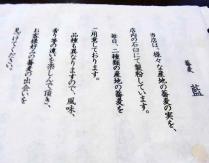 蕎麦 藍
当店は、様々な産地の蕎麦の実を、
店内の石臼にて製粉しています。
毎日、二種類の産地の蕎麦を
ご用意しております。
品種も異なりますので、風味、
香り等の違いを楽しんで頂き、
お客様好みの蕎麦の出会いを
見つけてください。